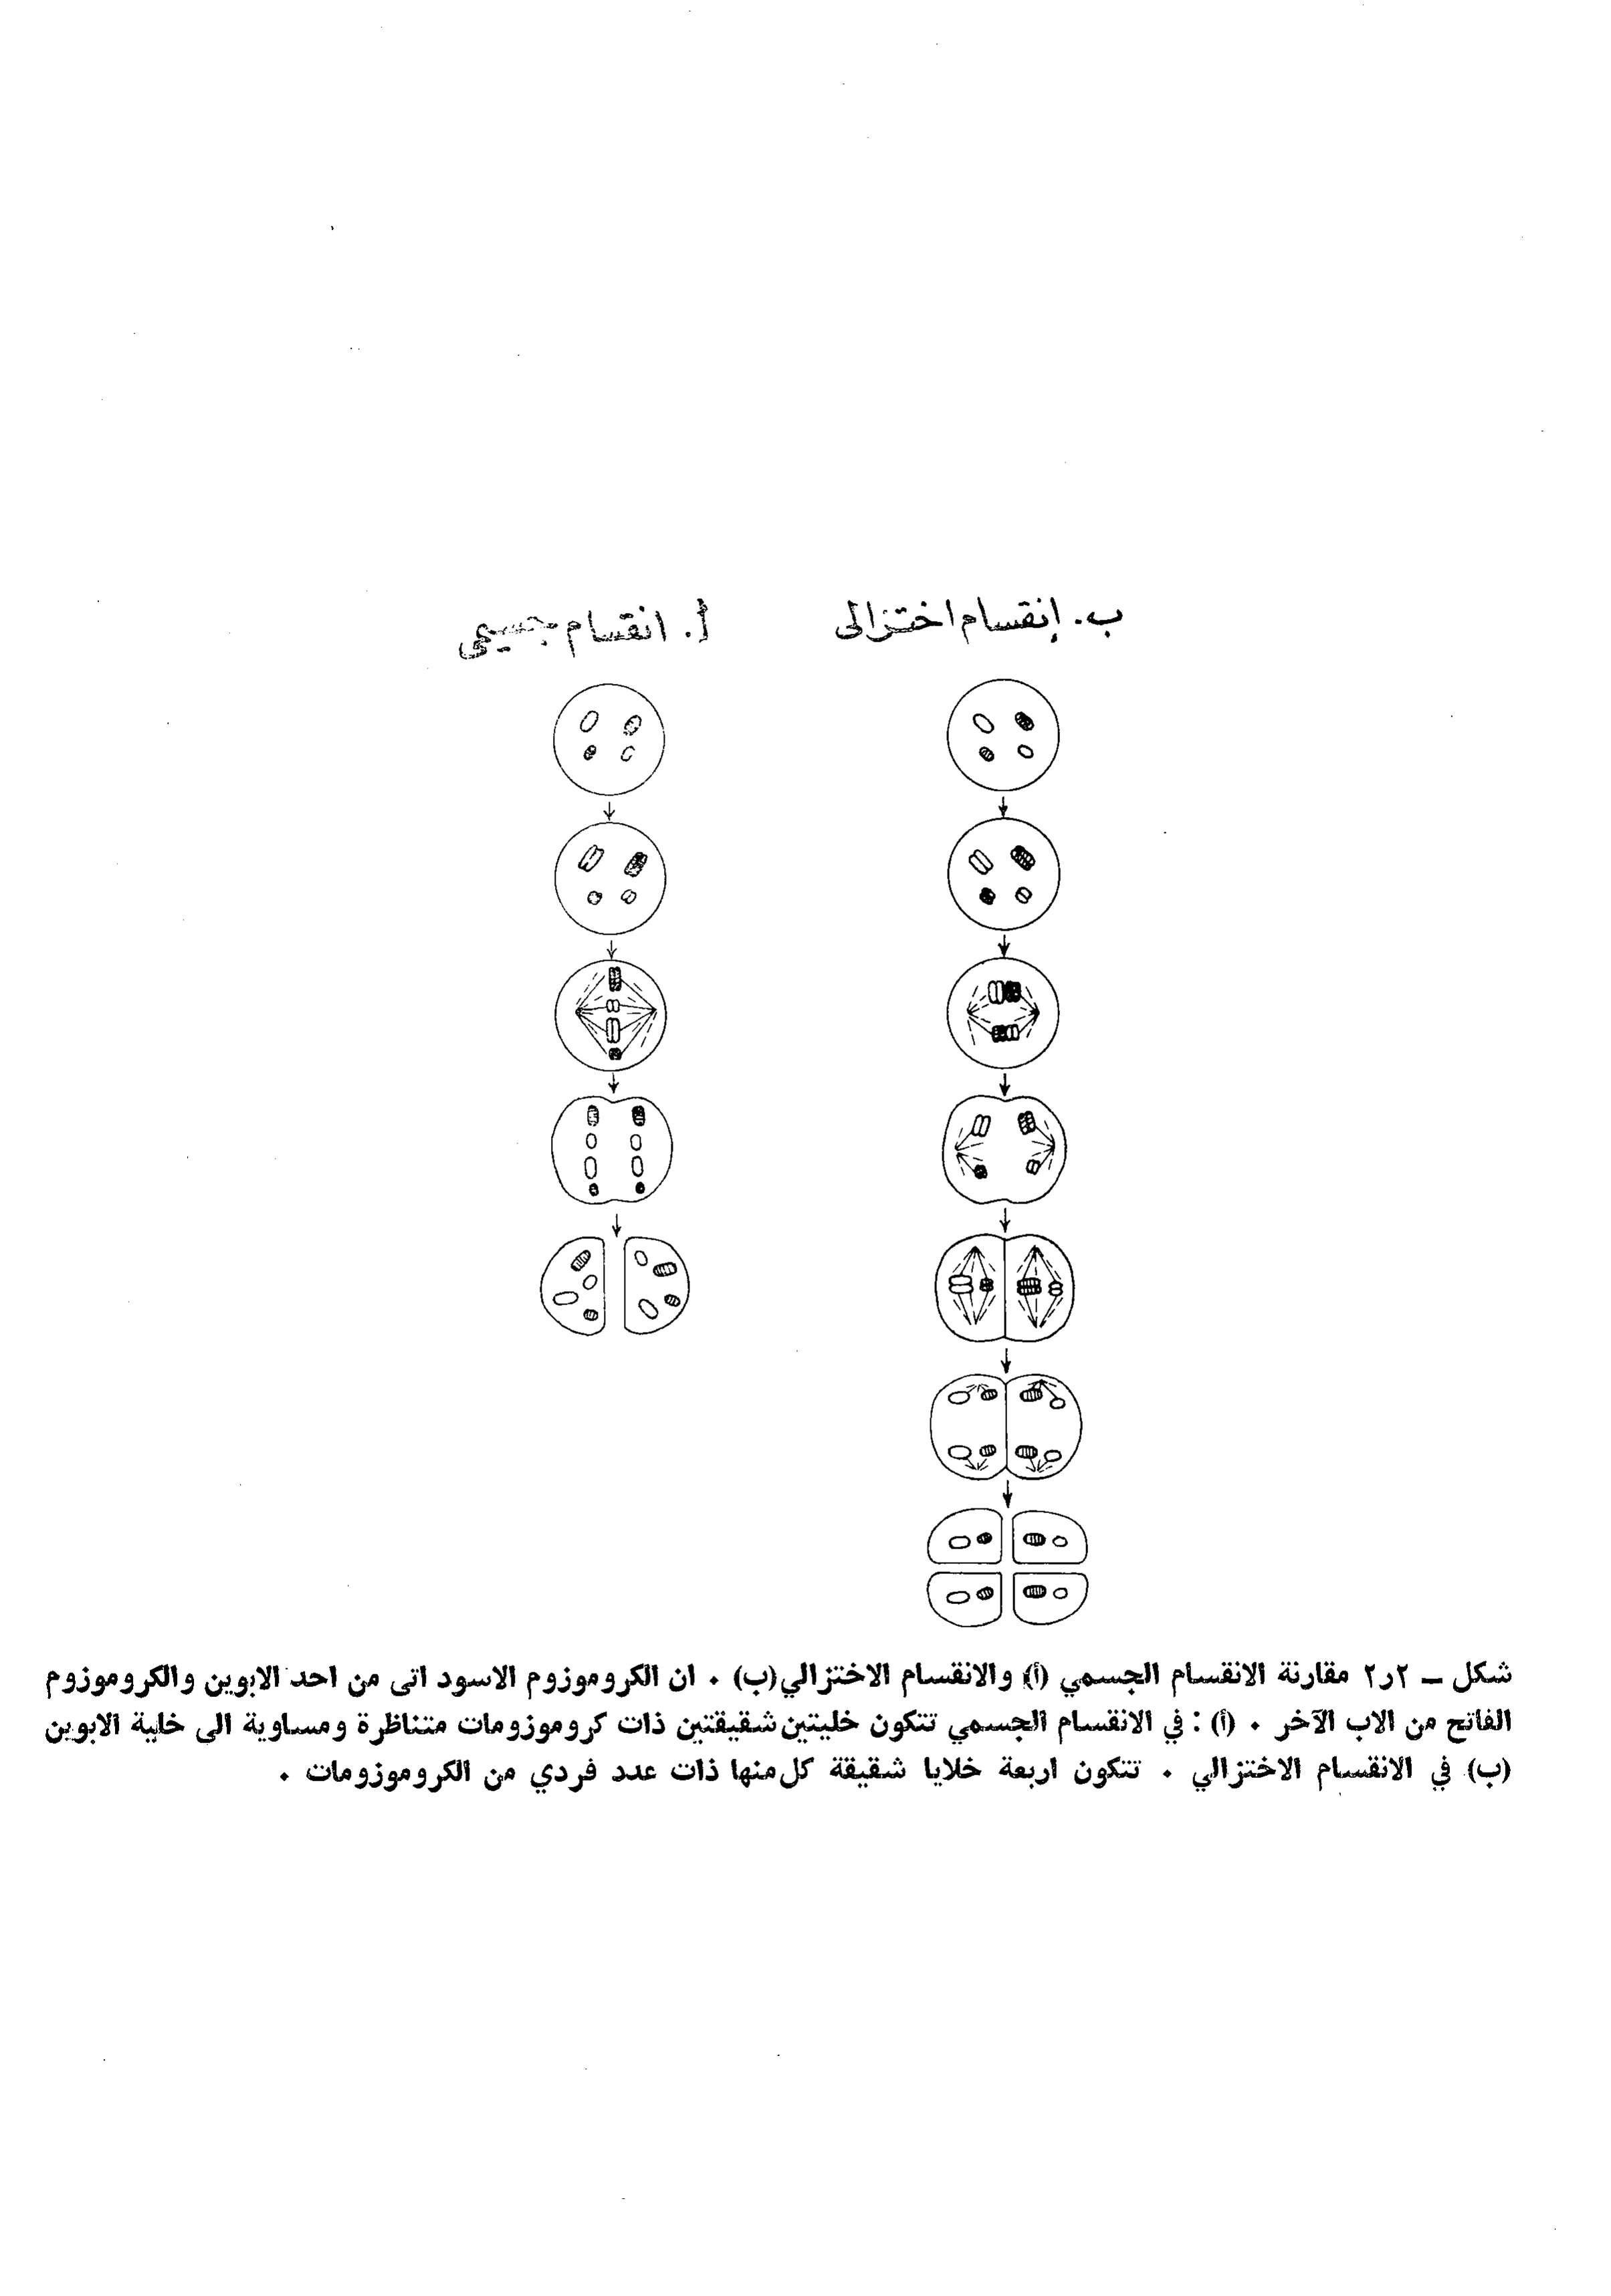 ب. إنقسام اختزالى
أ. انقسام جسمي
شكل – ٢ر٢ مقارنة الانقسام الجسمي (أ) والانقسام الاختزالي (ب) . ان الكروموزوم الاسود اتى من احد الابوين والكروموزوم
الفاتح من الاب الآخر . (أ) : في الانقسام الجسمي تتكون خليتين شقيقتين ذات كروموزومات متناظرة ومساوية الى خلية الابوين
(ب) في الانقسام الاختزالي . تتكون اربعة خلايا شقيقة كل منها ذات عدد فردي من الكروموزومات .